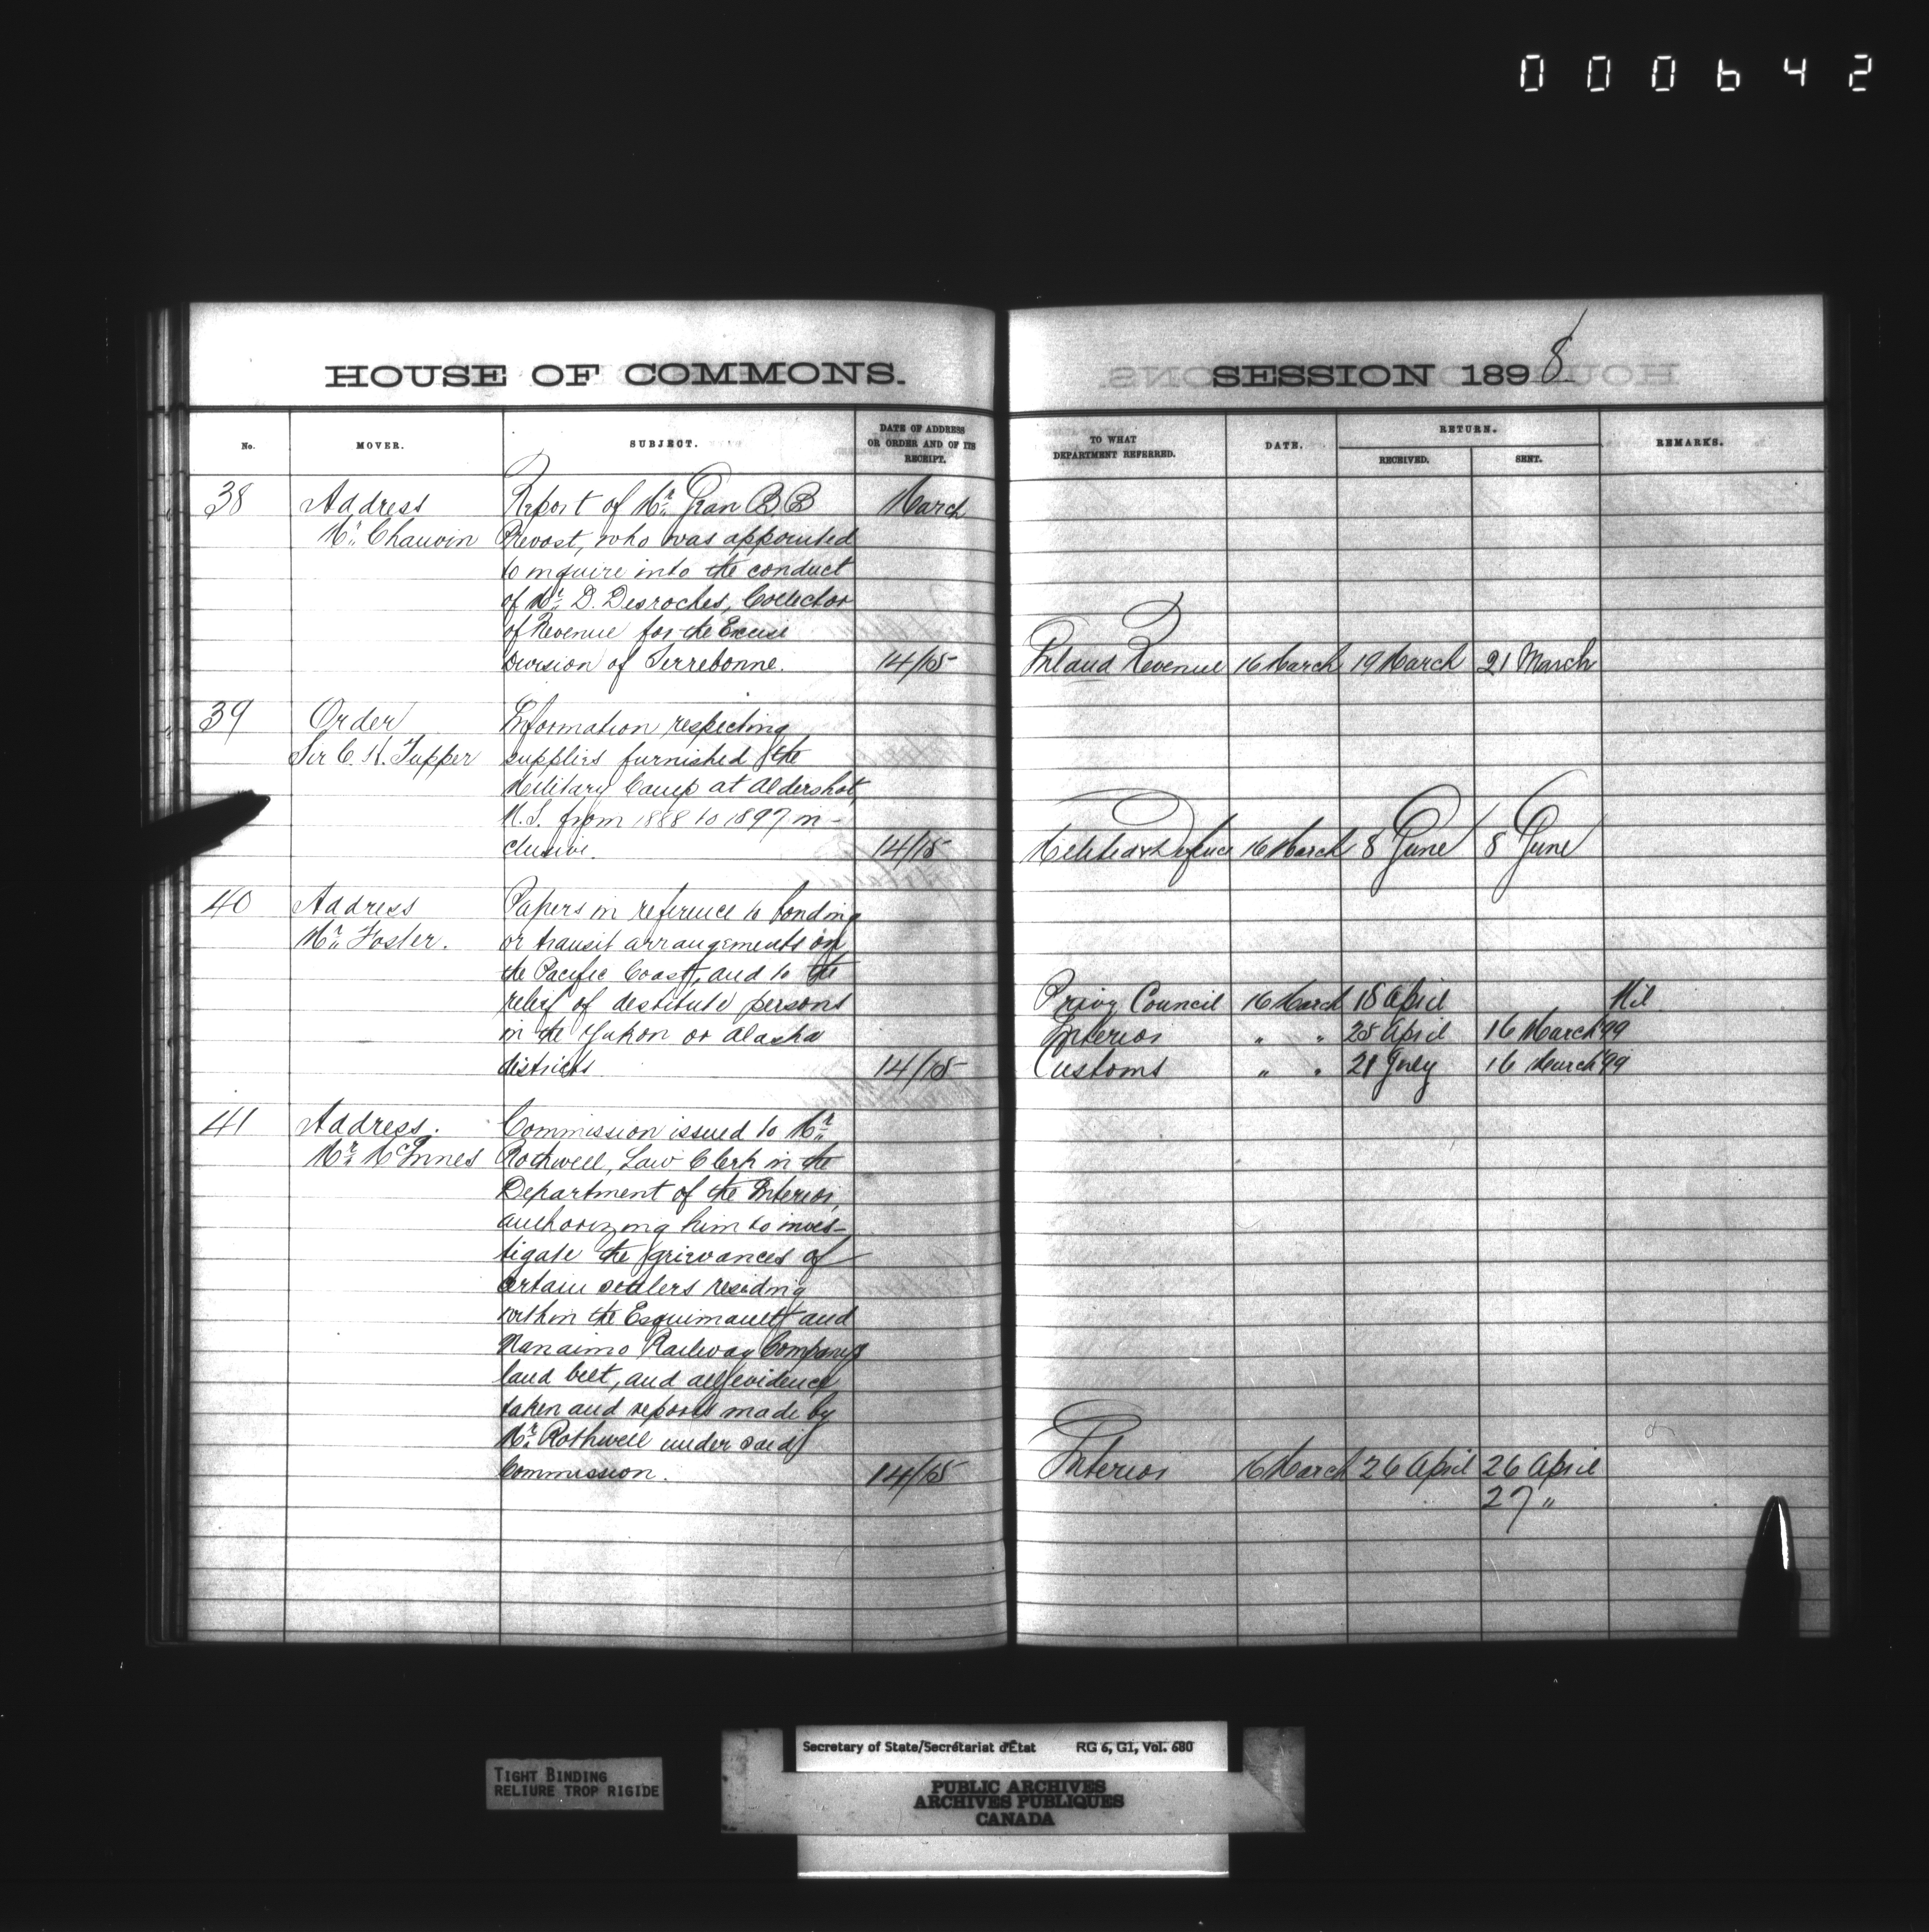 000642
HOUSE OF COMMONS.
SESSION 1898
No.
MOVER.
SUBJECT.
DATE OF ADDRESS OR ORDER AND OF ITS RECEIPT.
TO WHAT DEPARTMENT REFERRED.
DATE.
RETURN.
RECEIVED.
SENT.
REMARKS.
38 Address Report of Mr. Jean B. B March
Mr. Chauvin Prevost, who was appointed
to inquire into the conduct
of Mr. D. Desroches, Collector
of Revenue for the Excise
Division of Terrebonne. 14/15 Inland Revenue 16 March 19 March 21 March
39 Order Information respecting
Sir C. H. Tupper supplies furnished the
Military Camp at Aldershot,
N.S. from 1888 to 1897 in-
clusive. 14/15 Militia & Defence 16 March 8 June 8 June
40 Address Papers in reference to bonding
Mr. Foster. or transit arrangements on
the Pacific Coast, and to the
relief of destitute persons Privy Council 16 March 18 April Nil
in the Yukon or Alaska Interior " " 28 April 16 March '99
districts 14/15 Customs " " 21 July 16 March '99
41 Address. Commission issued to Mr.
Mr. McInnes Rothwell, Law Clerk in the
Department of the Interior,
authorizing him to inves-
tigate the grievances of
certain settlers residing
within the Esquimault and
Nanaimo Railway Company's
land belt, and all evidence
taken and reports made by
Mr. Rothwell under said
Commission. 14/15 Interior 16 March 26 April 26 April
27 "
TIGHT BINDING
RELIURE TROP RIGIDE
Secretary of State/Secrétariat d'État RG 6, G1, Vol. 680
PUBLIC ARCHIVES
ARCHIVES PUBLIQUES
CANADA